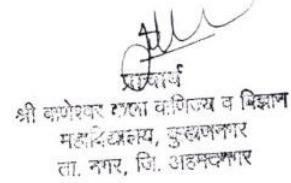 प्राचार्य
श्री बाणेश्वर कला वाणिज्य व विज्ञान
महाविद्यालय,
ता. नगर, जि. अहमदनगर